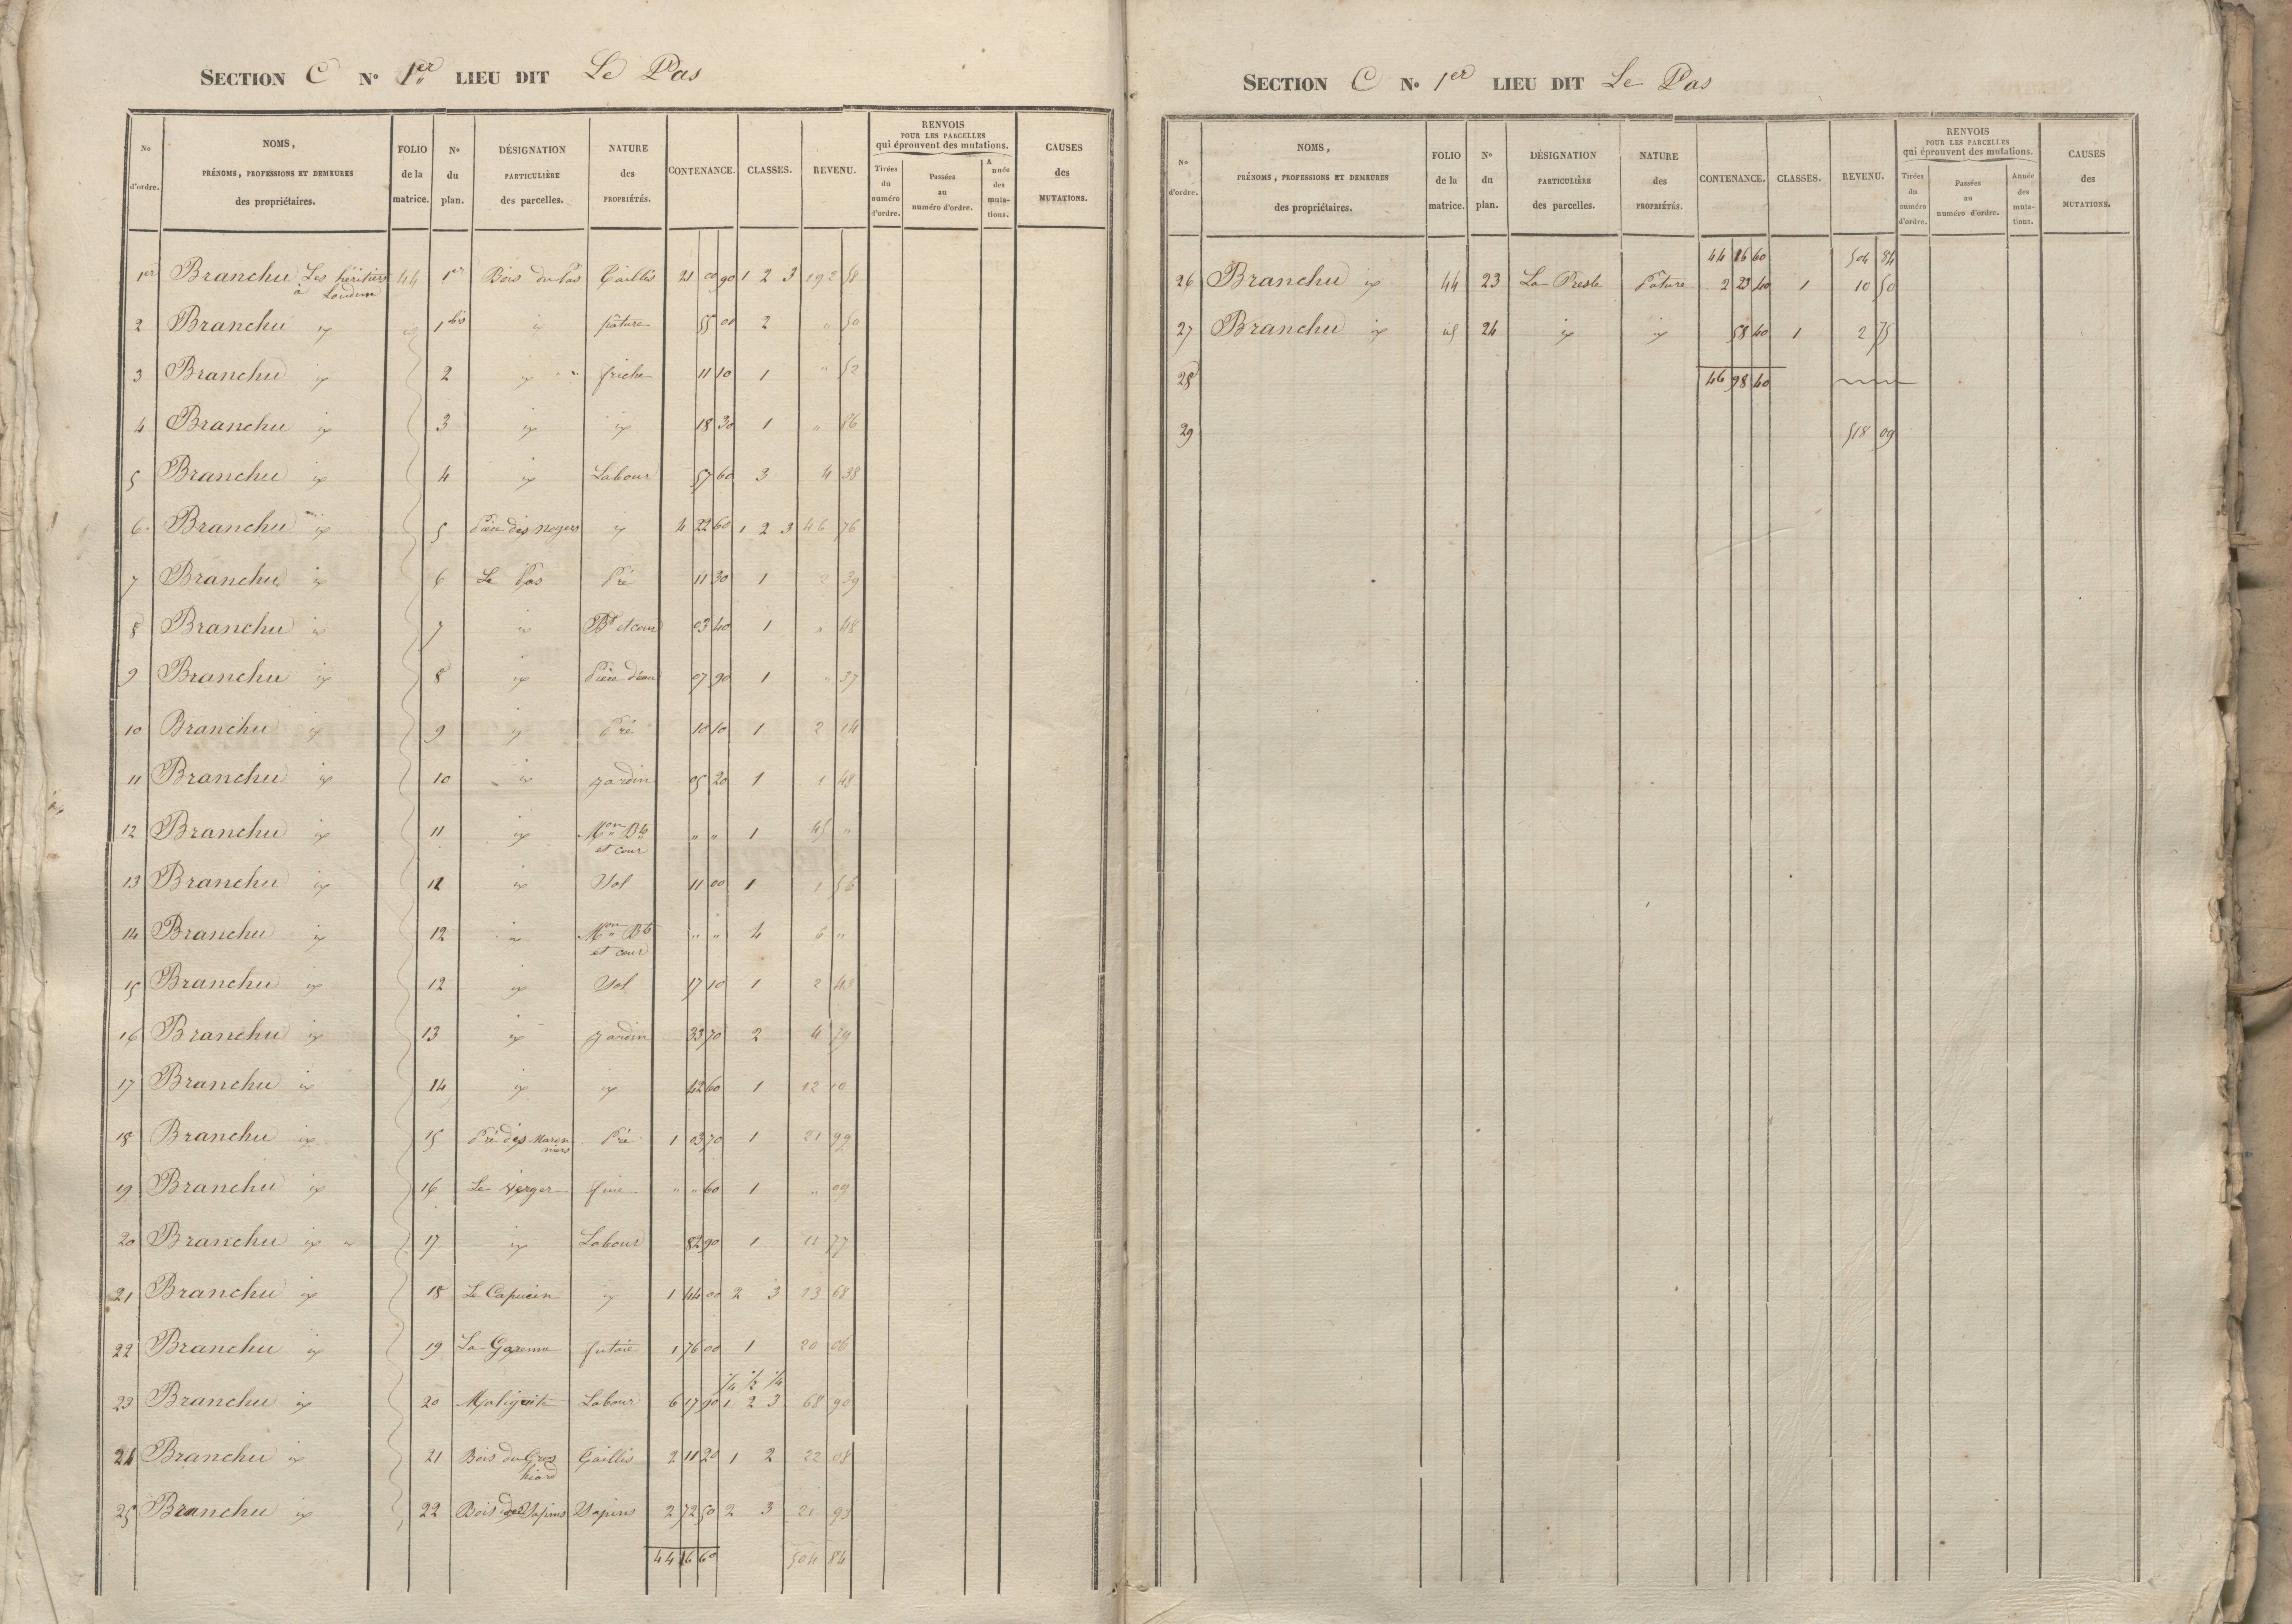 SECTION C N° 1er LIEU DIT Le Pas
No d'ordre. NOMS, PRÉNOMS, PROFESSIONS ET DEMEURES des propriétaires. FOLIO de la matrice. No du plan. DÉSIGNATION PARTICULIÈRE des parcelles. NATURE des PROPRIÉTÉS. CONTENANCE. CLASSES. REVENU. RENVOIS POUR LES PARCELLES qui éprouvent des mutations. Tirées du numéro d'ordre. Passées au numéro d'ordre. Année des mutations. CAUSES des MUTATIONS.
1er Branchu Les héritiers 44 1er Bois du Pas Taillis 21 00 90 1 2 3 192
à Loudun
2 Branchu id id 1bis id pâture 55 00 2 " 50
3 Branchu id 2 id friche 11 10 1 " 52
4 Branchu id 3 id id 18 30 1 " 86
5 Branchu id 4 id Labour 57 60 3 4 38
6 Branchu id 5 Pièce des Noyers id 4 22 60 1 2 3 46 76
7 Branchu id 6 Le Pas Pré 11 30 1 2 39
8 Branchu id 7 id Bt et cour 03 40 1 " 48
9 Branchu id 8 id Pièce d'eau 07 90 1 " 37
10 Branchu id 9 id Pré 10 10 1 2 14
11 Branchu id 10 id jardin 05 20 1 1 48
12 Branchu id 11 id Mon Bts 1 45 "
et cour
13 Branchu id 12 id Sol 11 00 1 1 56
14 Branchu id 12 id Mon Bts " " 4 6 "
et cour
15 Branchu id 12 id Sol 17 10 1 2 43
16 Branchu id 13 id jardin 33 70 2 4 79
17 Branchu id 14 id id 42 60 1 12 10
18 Branchu id 15 Pré des Maron Pré 1 03 70 1 21 99
niers
19 Branchu id 16 Le verger " " 60 1 " 09
20 Branchu id 17 id Labour 82 90 1 11 77
21 Branchu id 18 Le Capucin id 1 44 00 2 3 13 68
22 Branchu id 19 La Garenne futaie 1 76 00 1 20 06
1/4 1/2 1/4
23 Branchu id 20 Labour 6 17 90 1 2 3 68 90
24 Branchu id 21 Bois du Gros Taillis 2 11 20 1 2 22 08
25 Branchu id 22 Bois des Sapins Sapins 2 72 50 2 3 21 93
44 16 60 504 84
SECTION C N° 1er LIEU DIT Le Pas
No d'ordre. NOMS, PRÉNOMS, PROFESSIONS ET DEMEURES des propriétaires. FOLIO de la matrice. No du plan. DÉSIGNATION PARTICULIÈRE des parcelles. NATURE des PROPRIÉTÉS. CONTENANCE. CLASSES. REVENU. RENVOIS POUR LES PARCELLES qui éprouvent des mutations. Tirées du numéro d'ordre. Passées au numéro d'ordre. Année des mutations. CAUSES des MUTATIONS.
44 16 60 504 84
26 Branchu id 44 23 La Presle Pâture 2 23 40 1 10 50
27 Branchu id id 24 id id 58 40 1 2 75
28 46 98 40
29 518 09